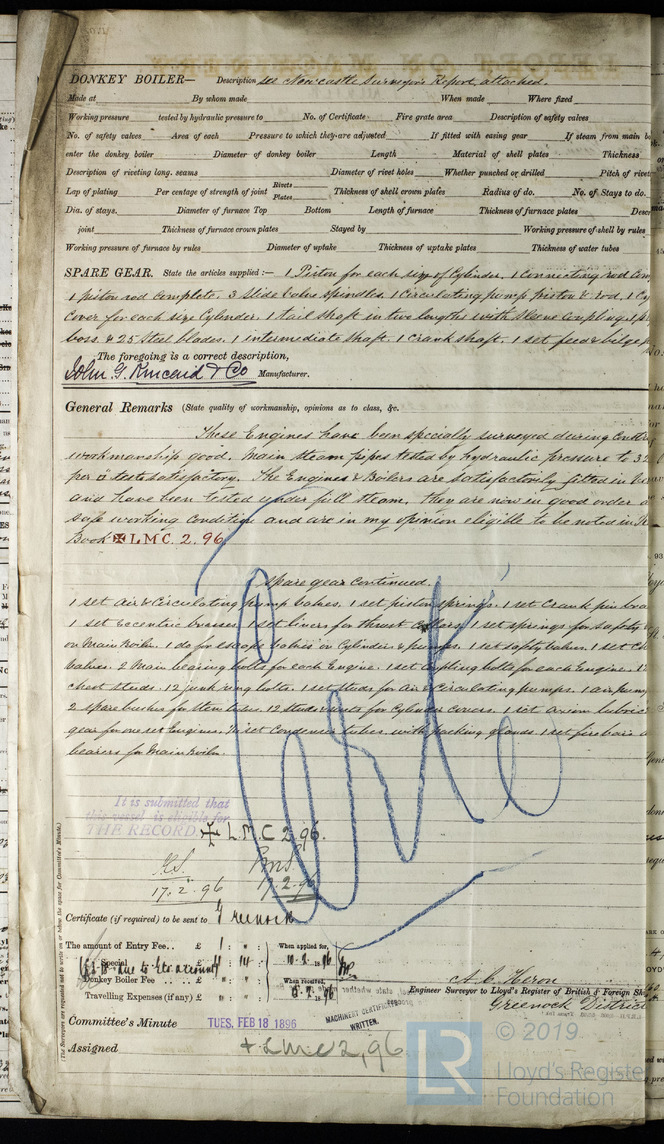 DONKEY BOILER— Description see Newcastle Surveyor's Report attached.
Made at By whom made When made Where fixed
Working pressure tested by hydraulic pressure to No. of Certificate Fire grate area Description of safety valves
No. of safety valves Area of each Pressure to which they are adjusted If fitted with easing gear If steam from main b
enter the donkey boiler Diameter of donkey boiler Length Material of shell plates Thickness
Description of riveting long. seams Diameter of rivet holes Whether punched or drilled Pitch of rivet
Lap of plating Per centage of strength of joint Rivets Plates Thickness of shell crown plates Radius of do. No. of Stays to do.
Dia. of stays. Diameter of furnace Top Bottom Length of furnace Thickness of furnace plates Descr
joint Thickness of furnace crown plates Stayed by Working pressure of shell by rules
Working pressure of furnace by rules Diameter of uptake Thickness of uptake plates Thickness of water tubes
SPARE GEAR. State the articles supplied:— 1 Piston for each size of Cylinder, 1 connecting rod com
1 piston rod complete, 3 slide valve spindles, 1 circulating pump piston & rod, 1 Cy
Cover for each size Cylinder. 1 tail shaft in two lengths with sleeve coupling, 1 pr
boss & 25 steel blades. 1 intermediate shaft. 1 crank shaft. 1 set feed & bilge p
The foregoing is a correct description,
John G. Kincaid & Co Manufacturer.
General Remarks (State quality of workmanship, opinions as to class, &c.
These Engines have been specially surveyed during Constr
workmanship good. Main steam pipes tested by hydraulic pressure to 32
per □" tests satisfactory. The Engines & Boilers are satisfactorily fitted in
and have been tested under full steam, they are now in good order a
safe working condition and are in my opinion eligible to be noted in
Book ✠ L M C. 2. 96
Spare gear continued.
1 set Air & Circulating pump valves, 1 set piston springs, 1 set crank pin bra
1 set Eccentric brasses, 1 set liners for thrust collars, 1 set springs for safety
on Main Boiler. 1 do for escape valves on Cylinder & pumps. 1 set safety valves. 1 set
valves. 2 Main bearing bolts for each Engine. 1 set coupling bolts for each Engine. 12
chest studs. 12 junk ring bolts. 1 set studs for air & circulating pumps. 1 air pump
2 spare bushes for stern tubes. 12 studs & nuts for Cylinder covers. 1 set
gear for one set Engines. set Condenser tubes with packing glands. 1 set firebars
bearers for Main Boiler.
It is submitted that
this vessel is eligible for
THE RECORD ✠ L.M.C 2.96.
17.2.96 17.2.96
Certificate (if required) to be sent to Greenock
The amount of Entry Fee.. £ 1 : " : When applied for,
Special £ 14 : 10.2.1896
Donkey Boiler Fee £ : : When received,
Travelling Expenses (if any) £ : :
A. C. Heron
Engineer Surveyor to Lloyd's Register of British & Foreign Sh
Greenock District
Committee's Minute TUES. FEB 18 1896
MACHINERY CERTIFICATE
WRITTEN.
Assigned + L.M.C 2,96
(The Surveyors are requested not to write on or below the space for Committee's Minute.)
LR © 2019
Lloyd's Registe
Foundation